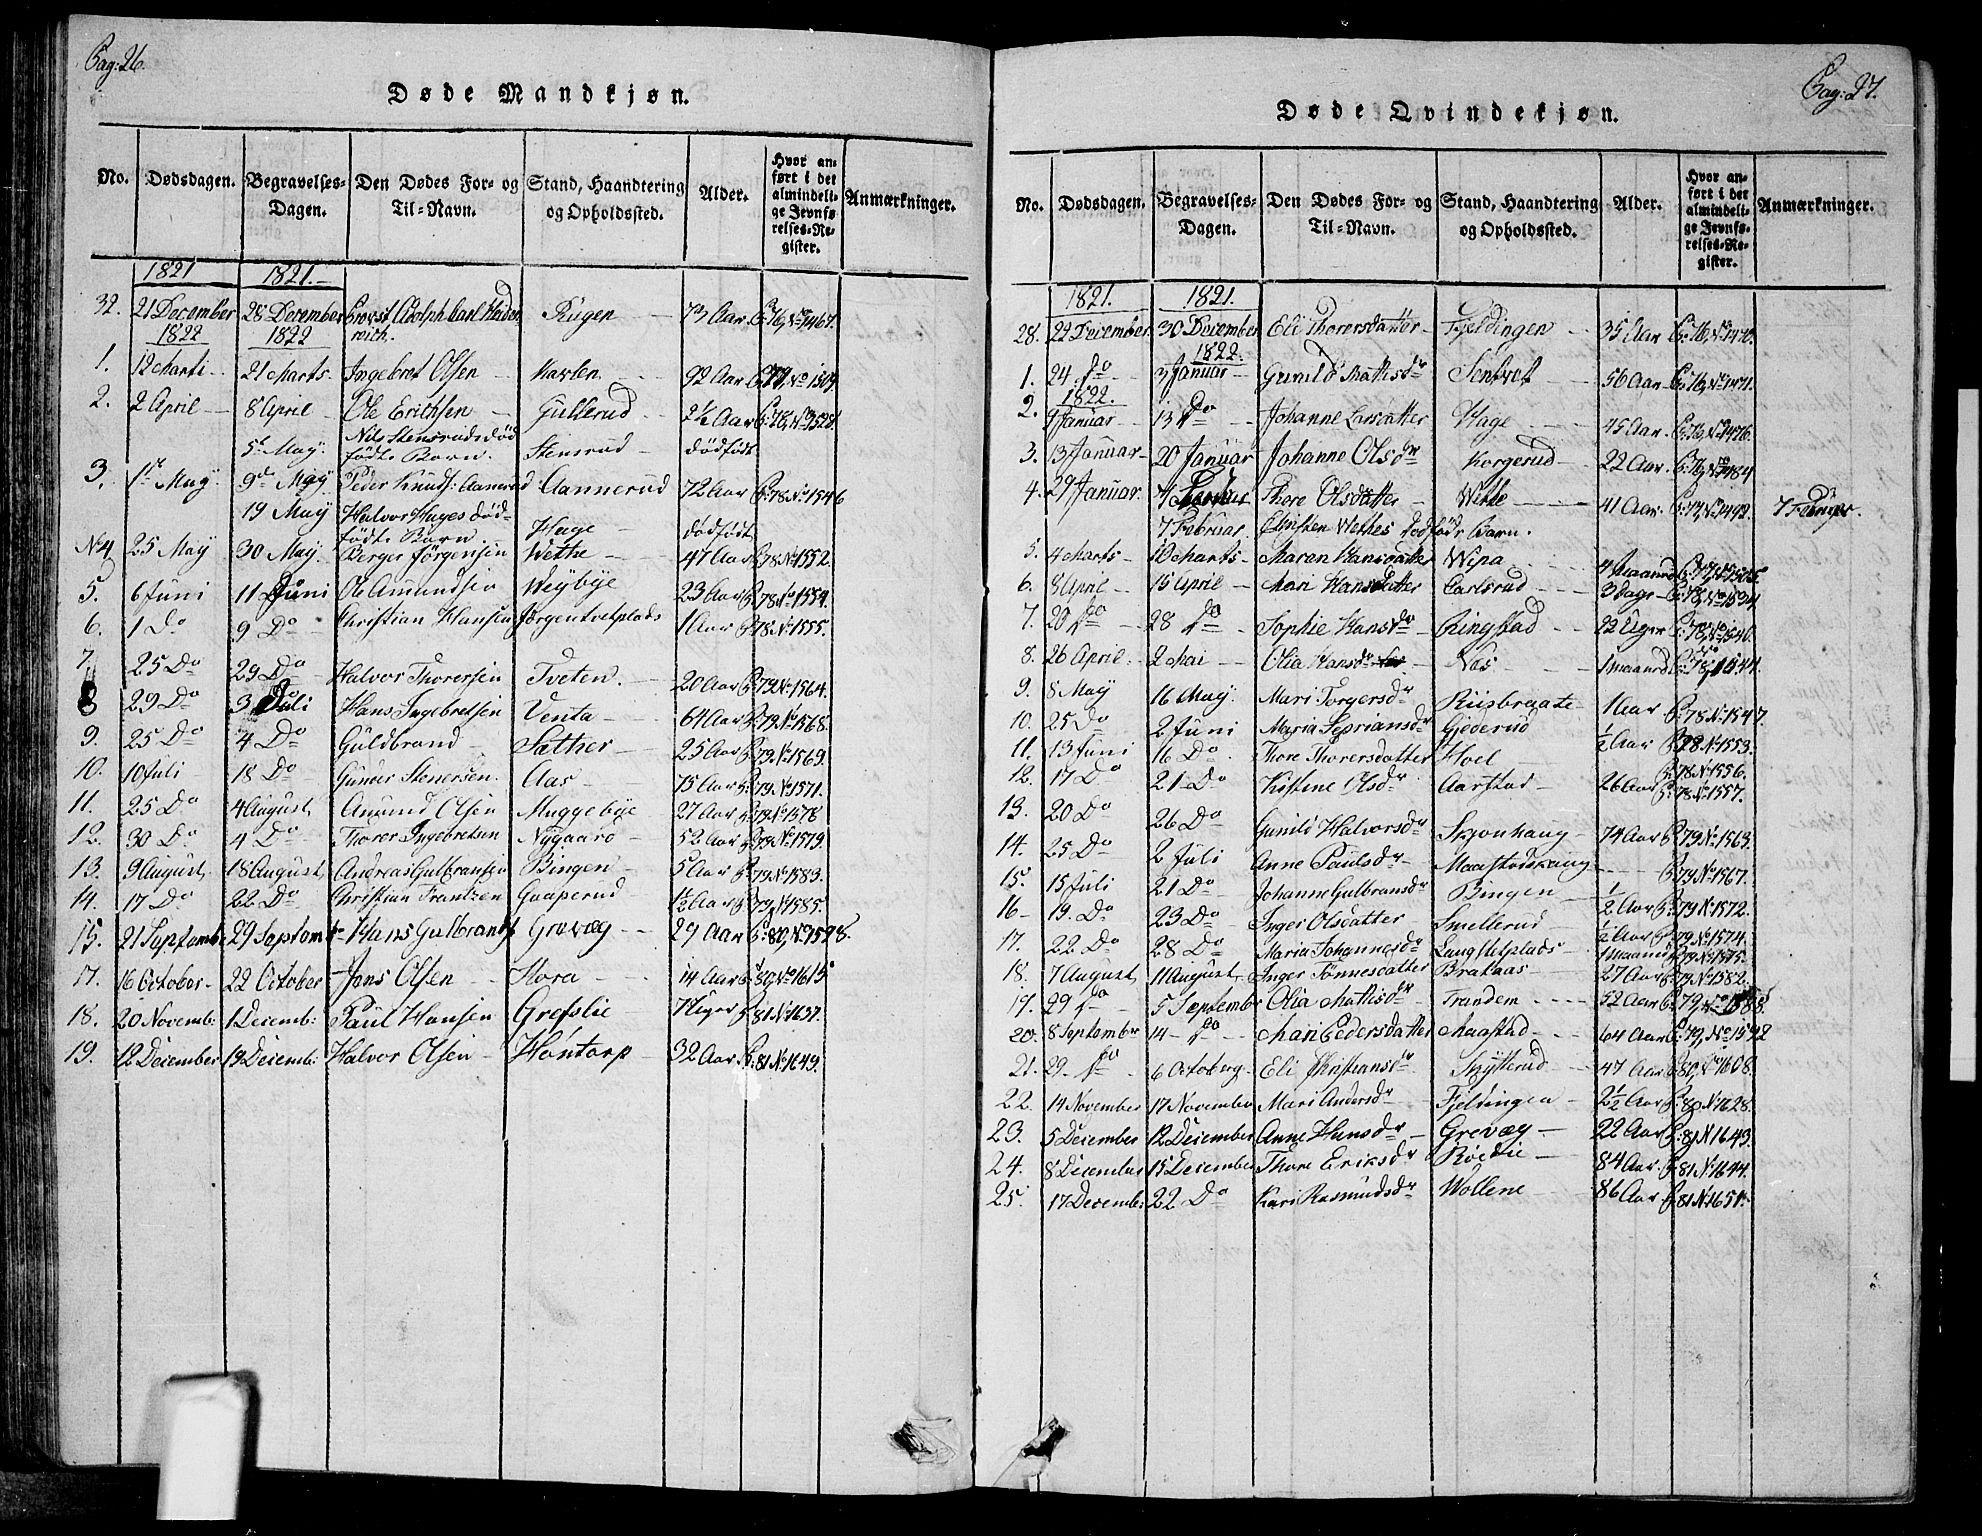 Pag: 26.
Døde Mandkjøn.
No. Dødsdagen. Begravelses-Dagen. Den Dødes For- og Til-Navn. Stand, Haandtering og Opholdssted. Alder. Hvor anført i det almindelige Jevnførelses-Register. Anmærkninger.
1821 1821.
32. 21 December 28 December Provst Adolph Carl Heidenreich. Rügen 73 Aar P: 76, No 1467.
1822 1822
1. 12 Marti 21 Marts Ingebret Olsen Haslen 92 Aar P: 77, No 1509.
2. 2 April 8 April Ole Erichsen Gullerud 2½ Aar P: 78, No 1528.
5te May. Nils Stensruds dødfødte Barn. Stensrud dødfødt
3. 1ste May 9de May Peder Knuds: Aannerud Aannerud 72 Aar P: 78 No 1546
19 May Halvor Hages dødfødte Barn Hage dødfødt
No 4. 25 May 30 May. Berger Jörgensen Wethe 47 Aar P: 78 No 1552.
5. 6 Juni 11 Juni Ole Amundsen Weybye 23 Aar P: 78 No 1554.
6. 1 Do 9 Do Christian Hansen Jörgentvetplads 1 Aar P: 78 No 1555.
7. 25 Do 29 Do Halvor Thorersen Tveten. 20 Aar P: 79 No 1564.
8 29 Do 3 Juli Hans Ingebretsen Venta 64 Aar P: 79 No 1568.
9. 25 Do 4 Do Guldbrand Sæther 25 Aar P: 79 No 1569.
10. 10 Juli 18 Do Gunder Stenersen. Aas 75 Aar P: 79 No 1571.
11. 25 Do 4 August Amund Olsen Muggebye 27 Aar P: 79 No 1578
12. 30 Do 4 Do Thorer Ingebretsen Nygaard 52 Aar P: 79 No 1579.
13. 9 August 18 August Andreas Gulbransen Bingen 5 Aar P: 79 No 1583.
14. 17 Do 22 Do Christian Frantzen Gaaperud 1½ Aar P: 79 No 1585.
15. 21 Septembe 29 Septemb Hans Gulbrands Grevæg 29 Aar P: 80, No 1598.
17. 16 October 22 October Jens Olsen Hora 14 Aar P: 80, No 1615
18. 20 Novemb: 1 Decemb: Paul Hansen Grefslie 7 Uger P: 81 No 1637.
19. 12 December 19 Decemb: Halvor Olsen Höntorp 32 Aar P: 81 No 1649.
Pag: 27.
Døde Qvindekjøn.
No. Dødsdagen. Begravelses-Dagen. Den Dødes For- og Til-Navn. Stand, Haandtering og Opholdssted. Alder. Hvor anført i det almindelige Jevnførelses-Register. Anmærkninger.
1821. 1821.
28. 22 December 30 December Eli Thorersdatter Fjeldingen 35 Aar P: 76, No 1470.
1822.
1. 24 Do 3 Januar Gunild Mathisdr Sentvet 56 Aar P: 76, No 1471.
1822.
2. 9 Januar 13 Do Johanne Larsdatter Hage 45 Aar P: 76, No 1476.
3. 13 Januar 20 Januar Johanne Olsdr Korgerud 22 Aar P: 76, No 1484
4. 29 Januar. Thore Olsdatter Wethe 41 Aar P: 77, No 1492.
7 Februar Wethes dødföde Barn.
5. 4 Marts 10 Marts Maren Hansdatter Wipa 4 Maaned P: 77, No 1505.
6. 8 April 15 April Mari Hansdatter Carlsrud 3 Dage P: 78, No 1534
7. 20 Do 28 Do Sophie Hansdr Ringstad 22 Uger P: 78, No 1540.
8. 26 April 2 Mai Olia Hansdr Næs 1 Maaned P: 78, No 1544.
9. 8 May 16 May. Mari Torgersdr Riisbraate 1 Aar P: 78 No 1547.
10. 25 Do 2 Juni Maria Seprians dr Gjederud ½ Aar P: 78 No 1553.
11. 13 Juni 16 Do Thore Thorersdatter Hoel P: 78 No 1556.
12. 17 Do 21 Do Kistine Olsdr Aarstad 26 Aar P: 78 No 1557.
13. 20 Do 26 Do Gunild Halvorsdr Skjønhaug 74 Aar P: 79 No 1563.
14. 25 Do 2 Juli Anne Paulsdr Maastadskaug P: 79 No 1567.
15. 15 Juli 21 Do Johanne Gulbransdr Bingen ½ Aar P: 79 No 1572.
16 19. Do 23 Do Inger Olsdatter Smellerud ½ Aar P: 79 No 1574.
17. 22 Do 28 Do Maria Johannesdr Langsletplads 1 Maaned P: 79 No 1575.
18. 7 August 11 August Inger Tönnesdatter Brataas 27 Aar P: 79 No 1582.
19. 29 Do 5 Septemb Olia Mathisdr Trandem 52 Aar P: 79, No 1588.
20. 8 Septembr 14 Do Mari Pedersdatter Maastad 64 Aar P: 79, No 1592
21. 29. Do 6 October Eli Christiansdr Skytterud 47 Aar P: 80, No 1608.
22. 14 November 17 November Mari Andersdr Fjeldingen 2½ Aar P: 80 No 1628.
23. 5 December 12 December Anne Hansdr Grevæg 22 Aar P: 81 No 1643.
24. 8 December 15 December Thore Eriksdr Roedie 84 Aar P: 81 No 1644.
25. 17 Decemb: 22 Do Kari Rasmusdsdr Wollene 86 Aar P: 81 No 1651.